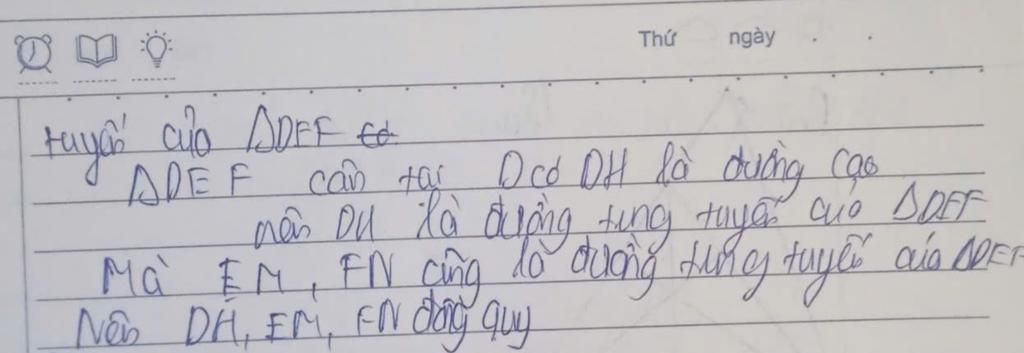 Thứ ngày . .
tuyến của ΔDEF
ΔDEF cân tại D có DH là đường cao
nên DH là đường trung tuyến của ΔDEF
Mà EM, FN cũng là đường trung tuyến của ΔDEF
Nên DH, EM, FN đồng quy